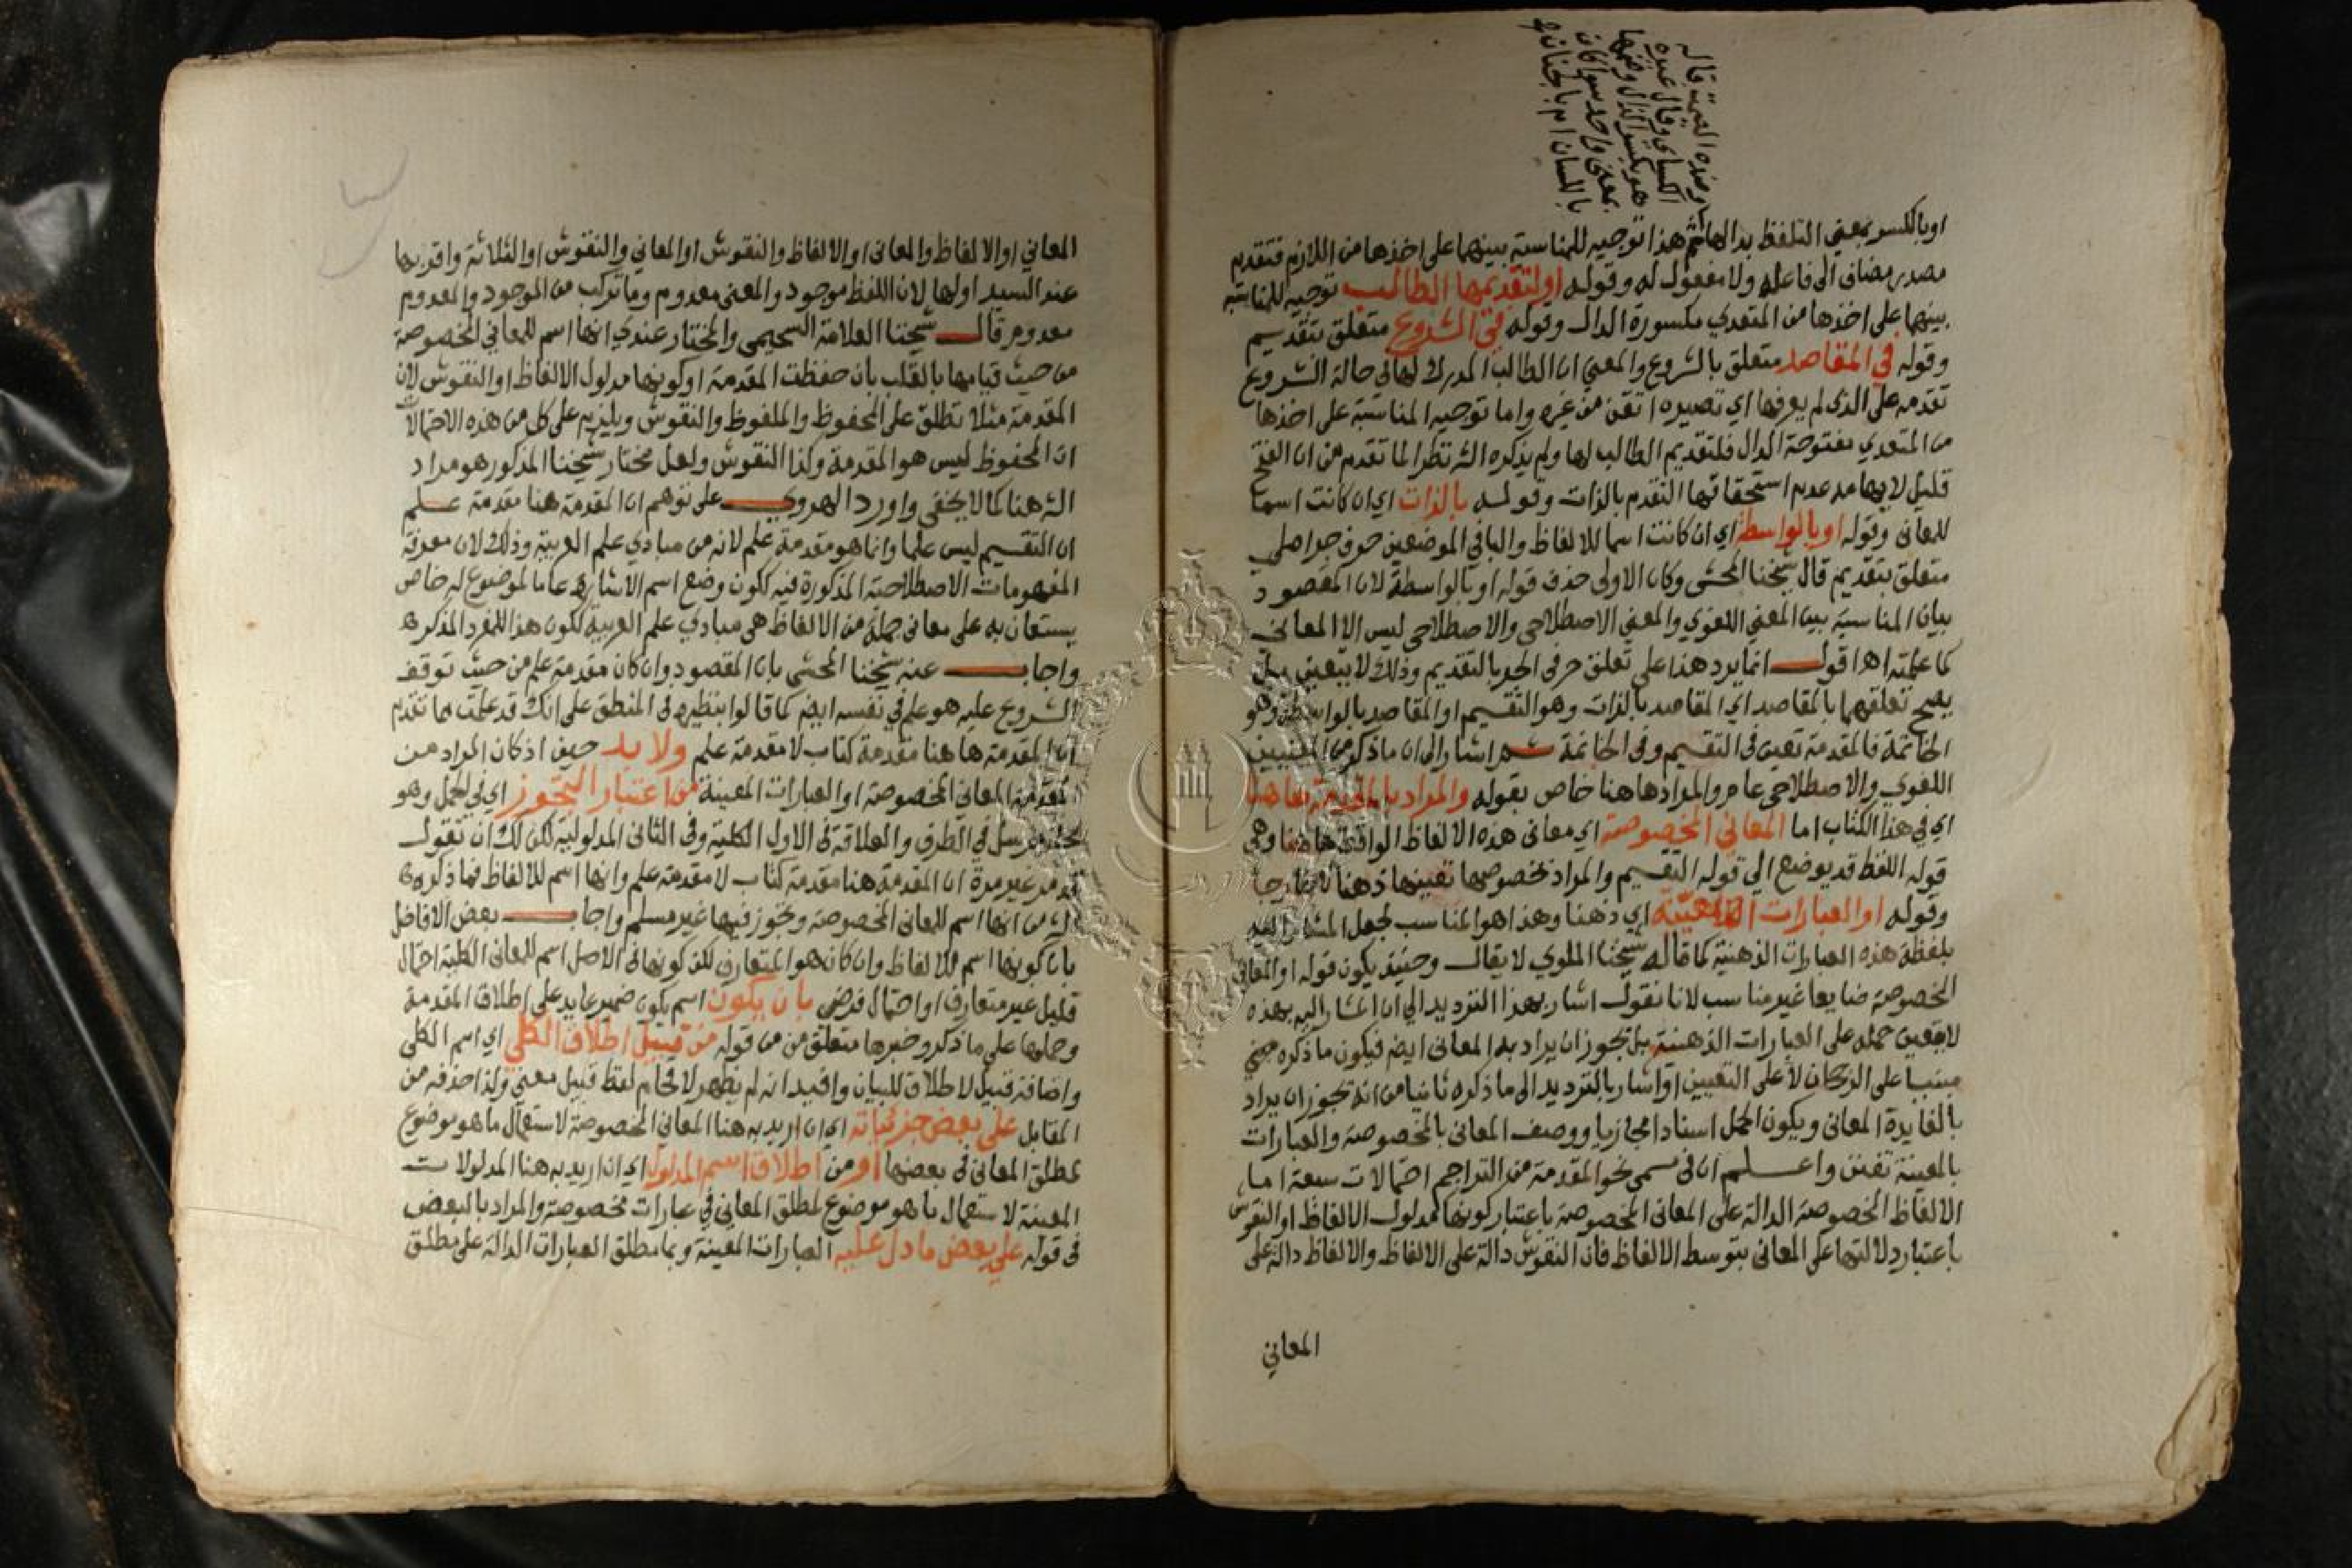 وضده الصمت قاله
الكسائي وقال غيره
هو بكسر الذال وضمها
بمعنى واحد سواء كان
باللسان ام بالجنان
او بالكسر بمعني التلفظ بدالها ثم هذا توجيه للمناسبة بينهما على اخذها من اللازم فتقديم
مصدر مضاف الى فاعله ولا مفعول له وقوله اولتقديمها الطالب توجيه للمناسبة
بينهما على اخذها من المتعدي مكسورة الدال وقوله في الشروع متعلق بتقديم
وقوله في المقاصد متعلق بالشروع والمعني ان الطالب المدرك لها في حالة الشروع
تقدمه على الذي لم يعرفها اي تصيره اتقن من غيره واما توجيه المناسبة على اخذها
من المتعدي مفتوحة الدال فلتقديم الطالب لها ولم يذكره الش نظرا لما تقدم من ان الفتح
قليل لايهامه عدم استحقاقها التقدم بالذات وقوله بالذات اي ان كانت اسما
للمعاني وقوله او بالواسطة اي ان كانت اسما للالفاظ والبا في الموضعين حرف جر اصلي
متعلق بتقديم قال شيخنا المحشى وكان الاولى حذف قوله او بالواسطة لان المقصود
بيان المناسبة بين المعني اللغوي والمعني الاصطلاحي والاصطلاحي ليس الا المعاني
كما علمته اه اقول انما يرد هذا على تعلق حرفى الجر بالتقديم وذلك لا يتعين بل
يصح تعلقهما بالمقاصد اي المقاصد بالذات وهو التقسيم او المقاصد بالواسطة وهو
الخاتمة فالمقدمة تعين فى التقسيم وفى الخاتمة ثم اشار الى ان ما ذكر من المعنيين
اللغوي والاصطلاحي عام والمراد هاهنا خاص بقوله والمراد بالمقدمة هاهنا
اي في هذا الكتاب اما المعاني المخصوصة اي معانى هذه الالفاظ الواقعة هاهنا وهي
قوله اللفظ قد يوضع الي قوله التقسيم والمراد بخصوصها تعينها ذهنا لا خارجا
وقوله او العبارات المعيّنة اي ذهنا وهذا هو المناسب لجعل المشار اليه
بلفظة هذه العبارات الذهنية كما قاله شيخنا الملوي لا يقال وحينئذ يكون قوله او المعاني
المخصوصة ضايعا غير مناسب لانا نقول اشار بهذا الترديد الي ان المشار اليه بهذه
لا يتعين حمله على العبارات الذهنية بل تجوز ان يراد به المعانى ايضا فيكون ما ذكره
مبنيا على الرجحان لا على التعيين او اشار بالترديد الى ما ذكره ثانيا من انه تجوز ان يراد
بالفايدة المعانى ويكون الحمل اسنادا مجازيا ووصف المعانى بالمخصوصة والعبارات
بالمعينة تفنن واعلم ان فى مسمى نحو المقدمة من التراجم احتمالات سبعة اما
الالفاظ المخصوصة الدالة على المعانى المخصوصة باعتبار كونها مدلول الالفاظ او النقوش
باعتبار دلالتها على المعانى بتوسط الالفاظ فان النقوش دالة على الالفاظ والالفاظ دالة على
المعاني
المعاني او الالفاظ والمعانى او الالفاظ والنقوش او المعاني والنقوش او الثلاثة واقربها
عند السيد اولها لان اللفظ موجود والمعنى معدوم وما تركب من الموجود والمعدوم
معدوم قال شيخنا العلامة السحيمى والمختار عندي انها اسم للمعاني المخصوصة
من حيث قيامها بالقلب بان حفظت المقدمة او كونها مدلول الالفاظ او النقوش لان
المقدمة مثلا تطلق على المحفوظ والملفوظ والنقوش ويلزم على كل من هذه الاحتمالات
ان المحفوظ ليس هو المقدمة وكذا النقوش ولعل مختار شيخنا المذكور هو مراد
الش هنا كما لا يخفى واورد الهروي على توهم ان المقدمة هنا مقدمة علم
ان التقسيم ليس علما وانما هو مقدمة علم لانه من مبادي علم العربية وذلك لان معرفة
المفهومات الاصطلاحية المذكورة فيه ككون وضع اسم الاشارة عاما لموضوع له خاص
يستعان به على معانى جملة من الالفاظ هى مبادي علم العربية ككون هذا للمفرد المذكر
واجاب عنه شيخنا المحشى بان المقصود وان كان مقدمة علم من حيث توقف
الشروع عليه هو علم في نفسه ايضا كما قالوا بنظيره فى المنطق على انك قد علمت مما تقدم
ان المقدمة هاهنا مقدمة كتاب لا مقدمة علم ولا بد حين اذ كان المراد من
المقدمة المعاني المخصوصة او العبارات المعينة من اعتبار التجوز اي في الحمل وهو
مجاز مرسل في الطرف والعلاقة فى الاول الكلية وفى الثانى المدلولية لكن لك ان تقول
قد مر غير مرة ان المقدمة هنا مقدمة كتاب لا مقدمة علم وانها اسم للالفاظ فما ذكره
الش من انها اسم للمعانى المخصوصة وتجوز فيها غير مسلم واجاب بعض الافاضل
بان كونها اسم للالفاظ وان كان هو المتعارف لكن كونها فى الاصل اسم للمعانى الكلية احتمال
قليل غير متعارف او احتمال فرضى بان يكون اسم يكون ضمير عايد على اطلاق المقدمة
وحملها على ما ذكر وخبرها متعلق من من قوله من قبيل اطلاق الكلي اي اسم الكلى
واضافة قبيل لاطلاق للبيان وافيد انه لم يظهر لاقحام لفظ قبيل معني ولذا حذفه من
المقابل على بعض جزئياته اي ان اريد به هنا المعاني المخصوصة لاستعمال ما هو موضوع
لمطلق المعانى فى بعضها او من اطلاق اسم المدلول اي ان اريد به هنا المدلولات
المعينة لاستعمال ما هو موضوع لمطلق المعانى في عبارات مخصوصة والمراد بالبعض
فى قوله على بعض ما دل عليه العبارات المعينة وبما مطلق العبارات الدالة على مطلق